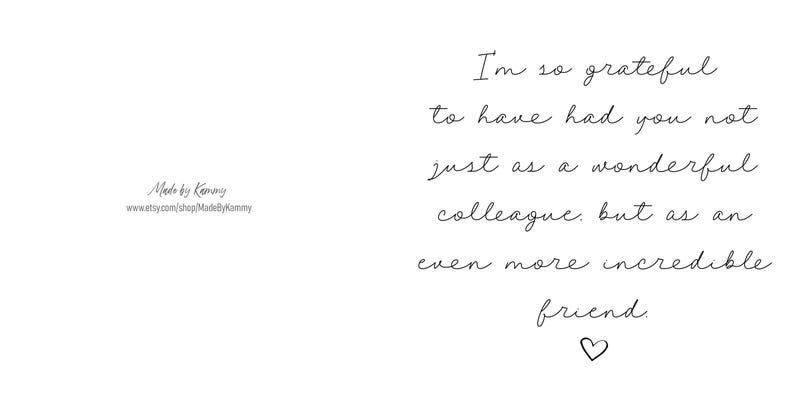 Made by Kammy
www.etsy.com/shop/MadeByKammy
I'm so grateful
to have had you not
just as a wonderful
colleague, but as an
even more incredible
friend.